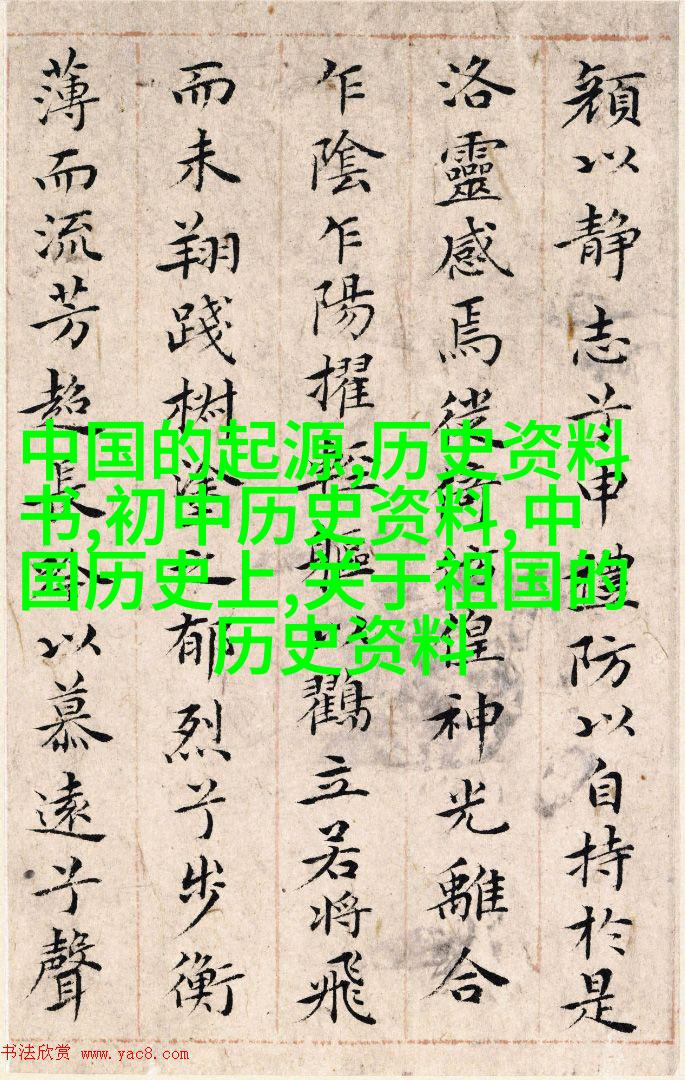 顔以静志兮申禮防以自持於是
洛靈感焉徙倚彷徨神光離合
乍陰乍陽擢輕軀以鸖立若将飛
而未翔踐椒塗之郁烈兮步衡
薄而流芳超長吟以慕遠兮聲
中国的起源,历史资料
书,初中历史资料,中
国历史上,关于祖国的
历史资料
书法欣赏 www.yac8.com